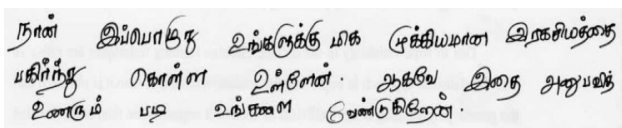 நான் இப்பொழுது உங்களுக்கு மிக முக்கியமான இரகசியத்தை
பகிர்ந்து கொள்ள உள்ளேன். ஆகவே இதை அனுபவித்
உணரும் படி உங்களை வேண்டுகிறேன்.